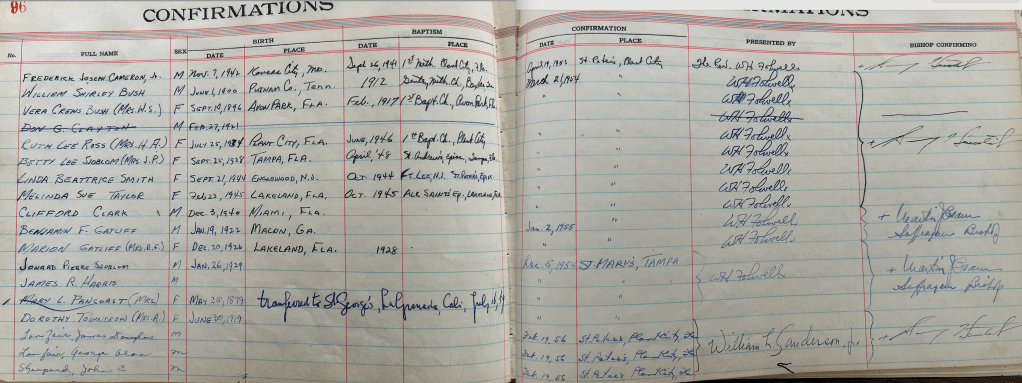 96
CONFIRMATIONS
No. FULL NAME SEX BIRTH DATE PLACE BAPTISM DATE PLACE
FREDERICK JOSEPH CAMERON, Jr. M Nov. 7, 1940 Kansas City, Mo. Sept 26, 1941 1st Meth. Plant City, Fla.
WILLIAM SHIRLEY BUSH M JUNE 1, 1900 PUTNAM Co., Tenn. 1912
VERA CREWS BUSH (MRS. W.S.) F SEPT. 10, 1896 AVON PARK, FLA. Feb., 1917 1st Bapt. Ch., Avon Park, Fla
DON G. CLAYTON M FEB. 27, 1921
RUTH LEE ROSS (MRS. H.A.) F JULY 25, PLANT CITY, FLA. JUNE, 1946 1st Bapt. Ch., Plant City
BETTY LEE SJOBLOM (MRS. J.P.) F SEPT. 25, 1928 TAMPA, FLA. April, '48 St. Andrew's, Episc., Tampa, Fla.
LINDA BEATRICE SMITH F SEPT. 21, 1944 ENGLEWOOD, N.J. OCT. 1944 FT. LEE, N.J.
MELINDA SUE TAYLOR F FEB 23, 1945 LAKELAND, FLA, OCT. 1945 ALL SAINTS Ep., LAKELAND, Fla
CLIFFORD CLARK M DEC. 3, 1940 MIAMI, FLA.
BENJAMIN F. GATLIFF M JAN. 19, 1922 MACON, GA.
MARION GATLIFF (MRS. B.F.) F DEC. 20, 1926 LAKELAND, FLA. 1928
PIERRE SJOBLOM M JAN. 26, 1929
JAMES R. HARRIS M
MARY L. PANCOAST (MRS) F MAY 25, 1879 transferred to St. George's, Cali, July
DOROTHY TOWNDROW (MRS. A.) F JUNE 30, 1919
Lanfair, James Douglas m
Lanfair, George m
Shepard, John C m
MATIONS
CONFIRMATION DATE PLACE PRESENTED BY BISHOP CONFIRMING
April 19, 1953 St. Peter's, Plant City The Rev. W.H. Folwell +
March 21, 1954 " W.H. Folwell
" W.H. Folwell
" W.H. Folwell
" W.H. Folwell +
" W.H. Folwell
" W.H. Folwell
" W.H. Folwell
" W.H. Folwell
Jan. 2, 1955 " W.H. Folwell + Martin J. Bram
" " W.H. Folwell Suffragan Bishop
Dec. 5, 1954 ST. MARY'S, TAMPA + Martin J. Bram
" W.H. Folwell Suffragan Bishop
"
"
Feb. 19, 56 St. Peter's, Plant City, Fla William L. Sanderson, Jr. +
Feb. 19, 56 St. Peter's, Plant City, Fla
Feb. 19, 56 St. Peter's, Plant City, Fla